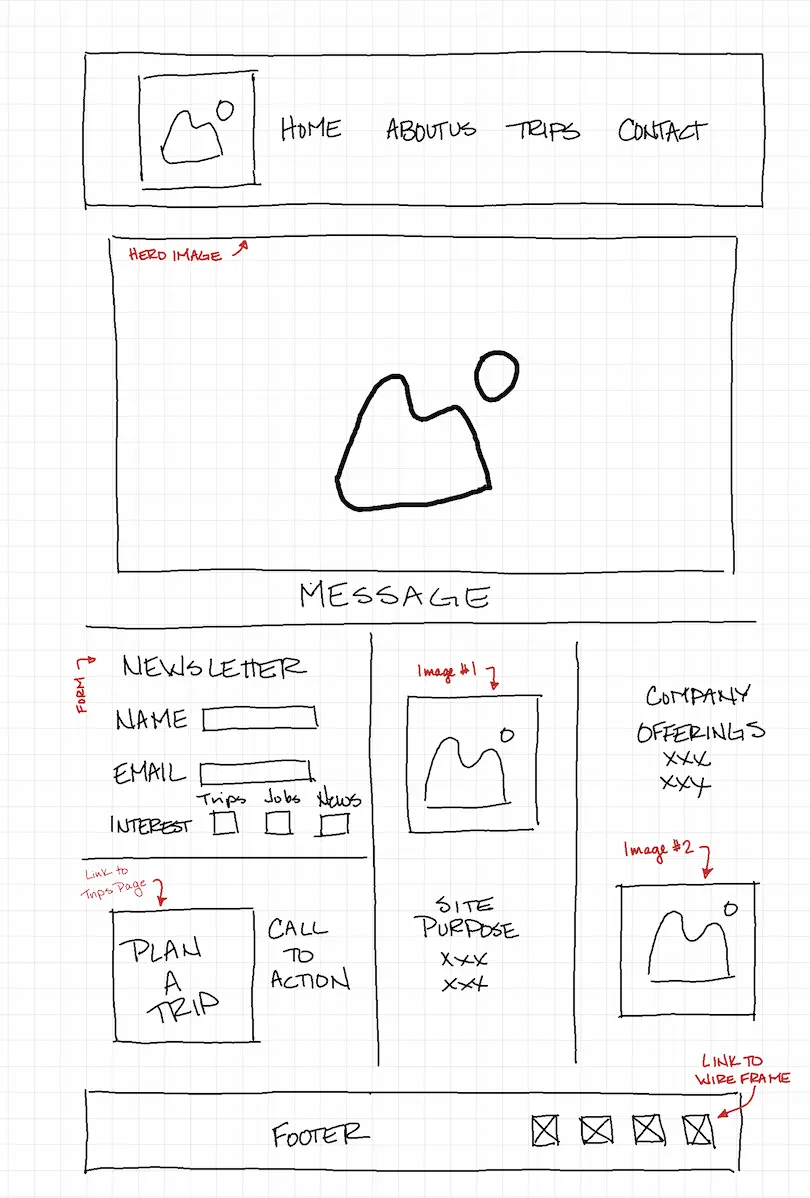 HOME ABOUT US TRIPS CONTACT
HERO IMAGE
MESSAGE
FORM
NEWSLETTER
NAME
EMAIL
Trips Jobs News
INTEREST
Link to
Trips Page
PLAN
A
TRIP
CALL
TO
ACTION
Image #1
SITE
PURPOSE
XXX
XXX
COMPANY
OFFERINGS
XXX
XXX
Image #2
LINK TO
WIRE FRAME
FOOTER